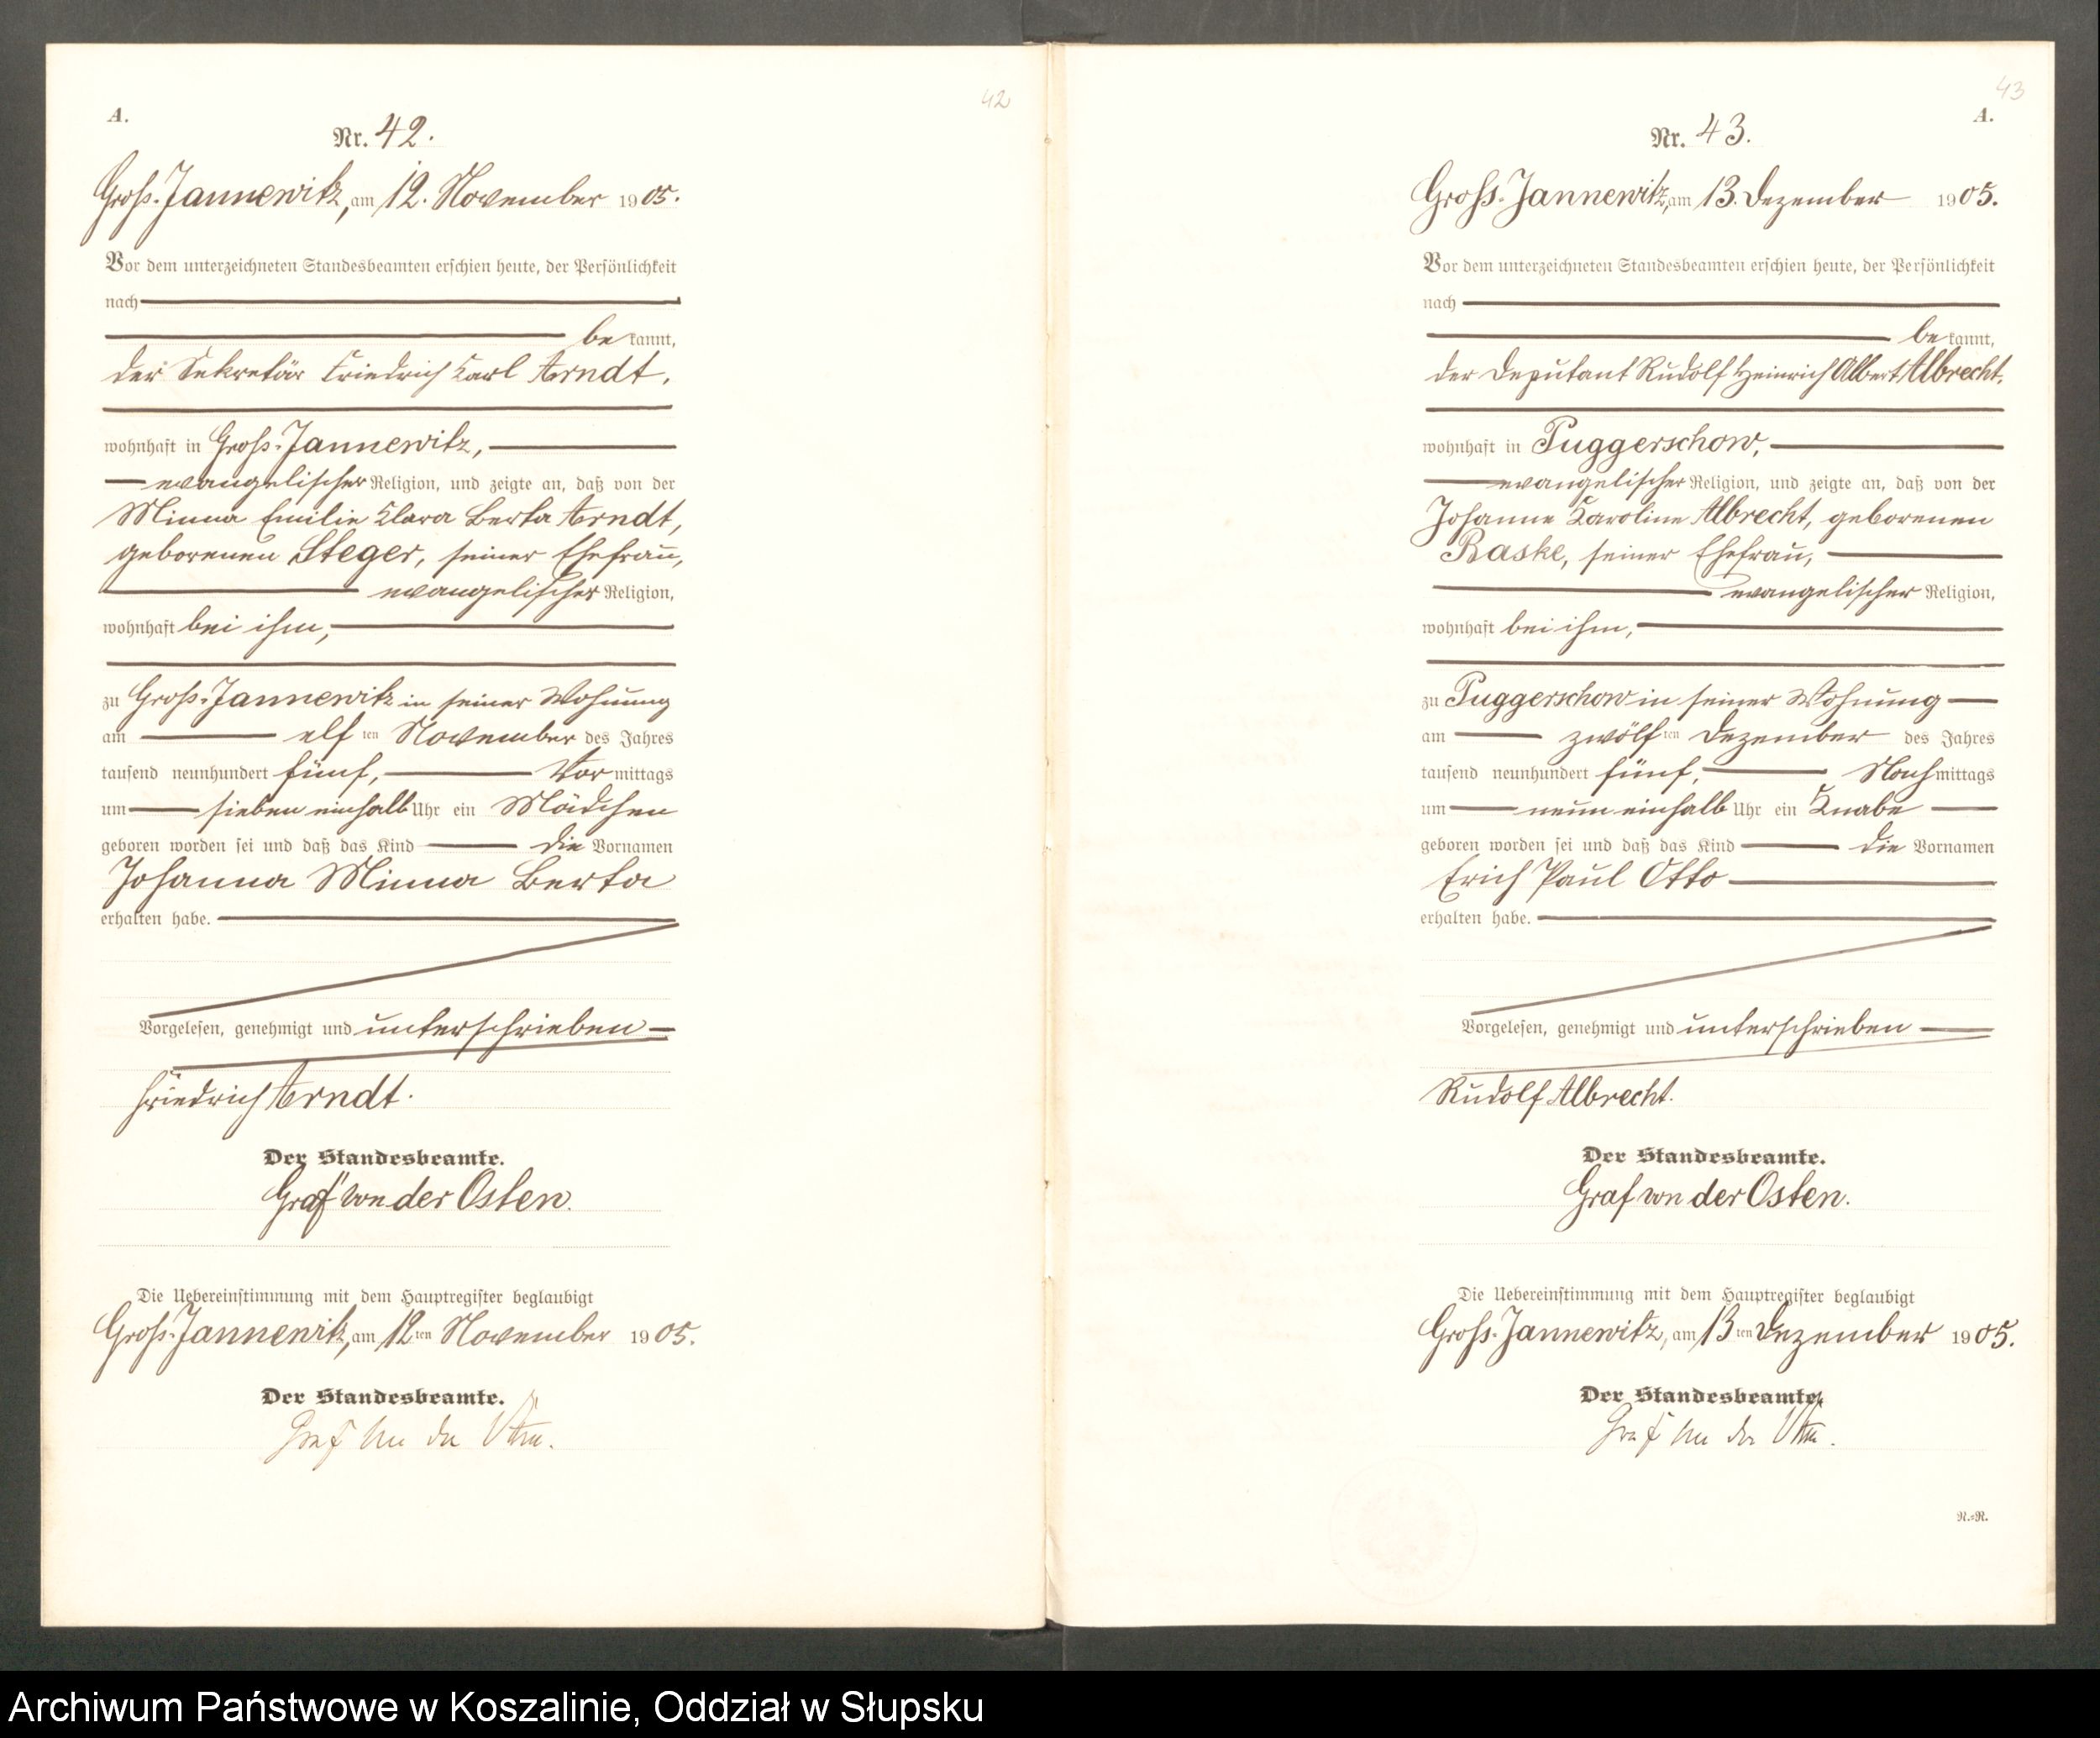 42
A.
Nr. 42.
Groß-Jannewitz, am 12. November 1905.
Vor dem unterzeichneten Standesbeamten erschien heute, der Persönlichkeit
nach
bekannt,
der Sekretär Friedrich Karl Arndt,
wohnhaft in Groß-Jannewitz,
evangelischer Religion, und zeigte an, daß von der
Minna Emilie Klara Berta Arndt,
geborenen Steger, seiner Ehefrau,
evangelischer Religion,
wohnhaft bei ihm,
zu Groß-Jannewitz in seiner Wohnung
am elften November des Jahres
tausend neunhundert fünf, Vormittags
um sieben einhalb Uhr ein Mädchen
geboren worden sei und daß das Kind die Vornamen
Johanna Minna Berta
erhalten habe.
Vorgelesen, genehmigt und unterschrieben
Friedrich Arndt.
Der Standesbeamte.
Graf von der Osten.
Die Uebereinstimmung mit dem Hauptregister beglaubigt
Groß-Jannewitz, am 12ten November 1905.
Der Standesbeamte.
Graf von der Osten.
43
A.
Nr. 43.
Groß-Jannewitz, am 13. Dezember 1905.
Vor dem unterzeichneten Standesbeamten erschien heute, der Persönlichkeit
nach
bekannt,
der Deputant Rudolf Heinrich Albert Albrecht,
wohnhaft in Puggerschow,
evangelischer Religion, und zeigte an, daß von der
Johanne Karoline Albrecht, geborenen
Raske, seiner Ehefrau,
evangelischer Religion,
wohnhaft bei ihm,
zu Puggerschow in seiner Wohnung
am zwölften Dezember des Jahres
tausend neunhundert fünf, Nachmittags
um neun einhalb Uhr ein Knabe
geboren worden sei und daß das Kind die Vornamen
Erich Paul Otto
erhalten habe.
Vorgelesen, genehmigt und unterschrieben
Rudolf Albrecht.
Der Standesbeamte.
Graf von der Osten.
Die Uebereinstimmung mit dem Hauptregister beglaubigt
Groß-Jannewitz, am 13ten Dezember 1905.
Der Standesbeamte.
Graf von der Osten.
N.=R.
Archiwum Państwowe w Koszalinie, Oddział w Słupsku